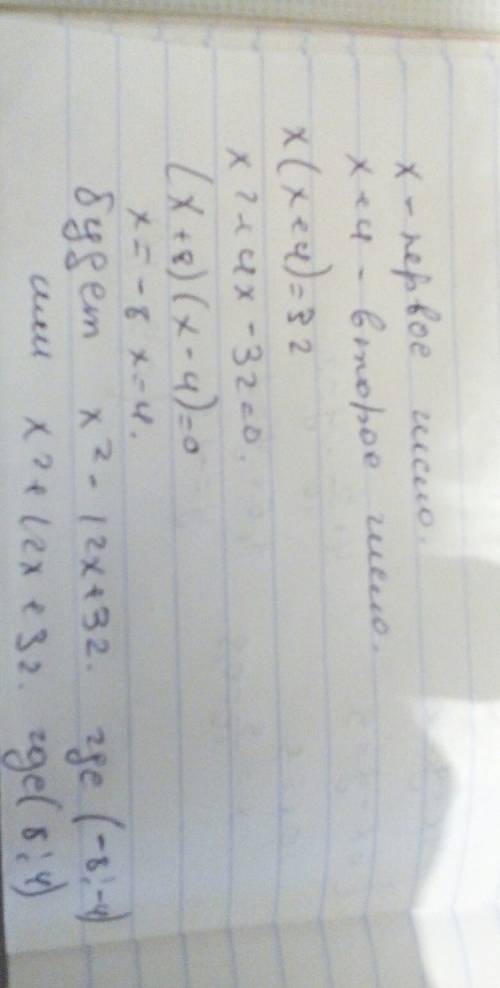 x - первое число.
x + 4 - второе число.
x(x+4)=32
x² + 4x - 32=0.
(x+8)(x-4)=0
x=-8 x=4.
будет x² - 12x+32. где (-8;-4)
или x² + 12x + 32. где (8;4)